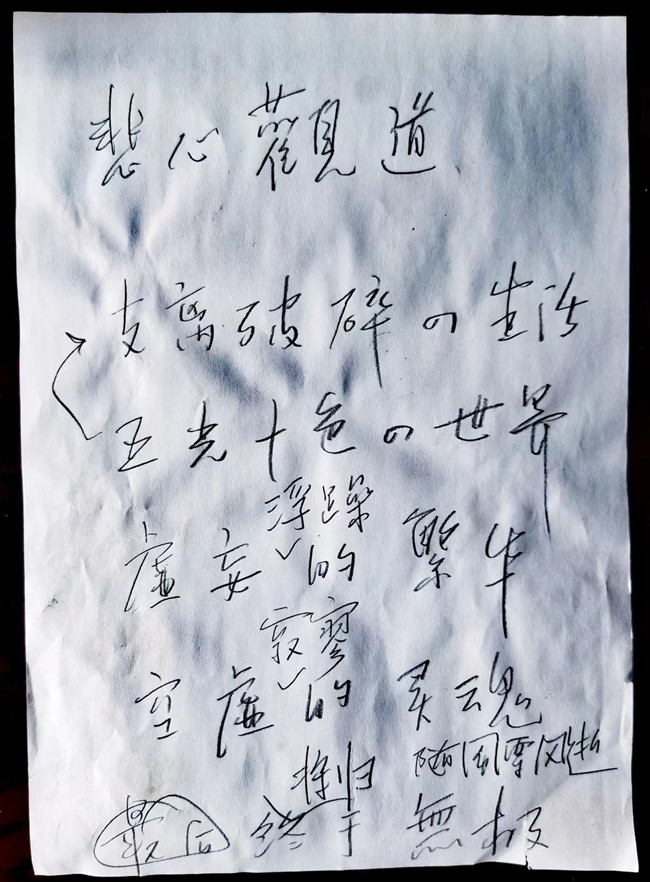 悲心觀道
支离破碎の生活
五光十色の世界
浮躁
虚妄的繁华
寂寥
空虚的灵魂
将归 随風雲风逝
最后 终于無极